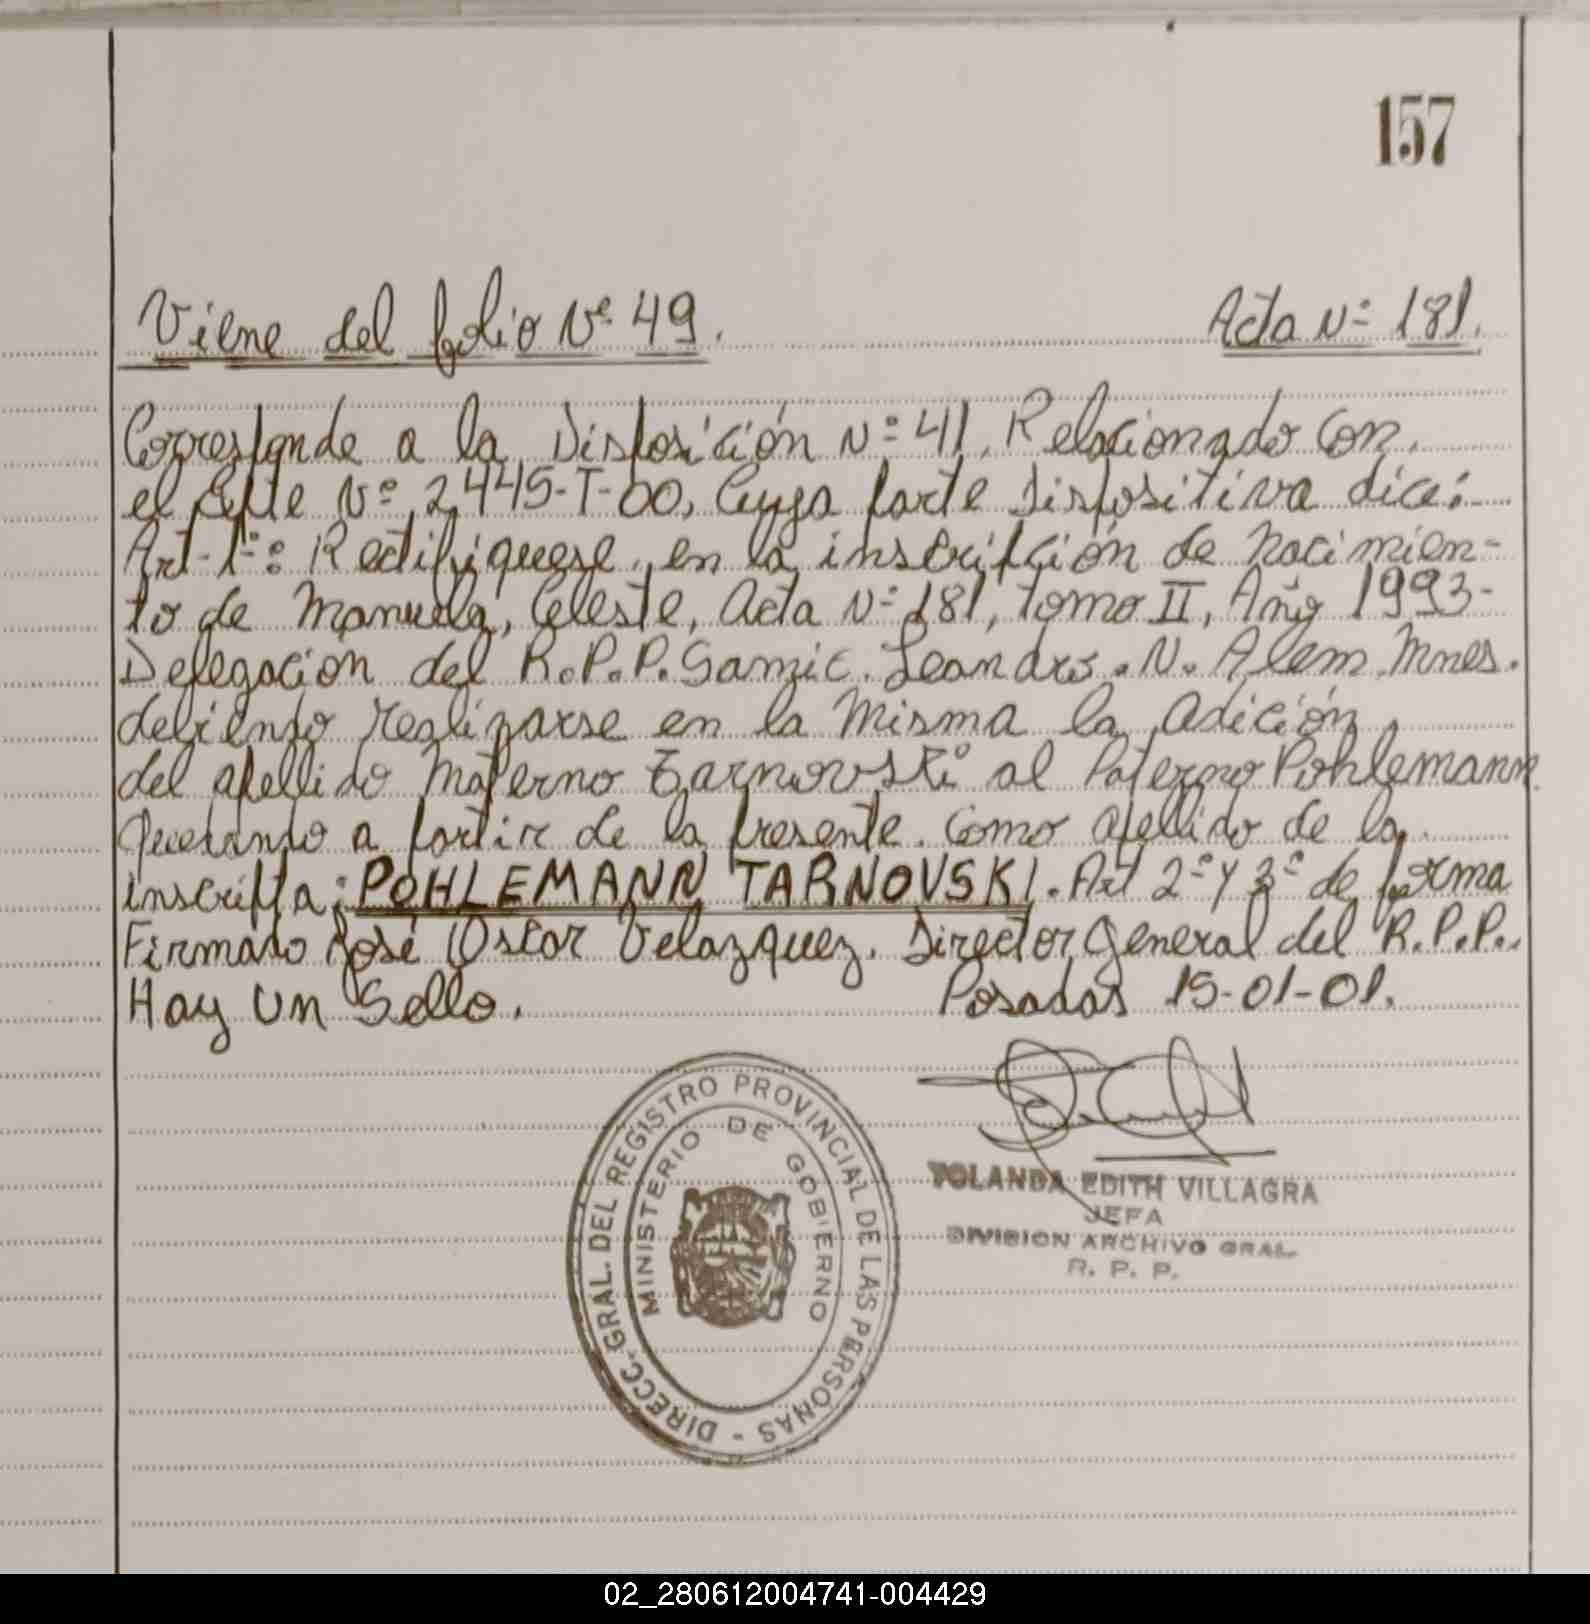 157
Viene del folio Nº 49.
Acta Nº 181.
Corresponde a la Disposición Nº 41, Relacionado Con.
el Expte Nº 2445-T-00, Cuya parte Dispositiva dice:
Art-1º: Rectifiquese, en la inscripción de Nacimien-
to de Manuela, Celeste, Acta Nº 181, tomo II, Año 1993-
Delegación del R.P.P. Samic. Leandro.N. Alem, Mnes.
debiendo realizarse en la Misma la adición
del apellido Materno Tarnovski al Paterno Pohlemann
Quedando a partir de la presente. Como apellido de la
inscripta: POHLEMANN TARNOVSKI. Art 2º y 3º de forma
Firmado José Oscar Velazquez. Director General del R.P.P..
Hay Un Sello.
Posadas 15-01-01.
DIRECC. GRAL. DEL REGISTRO PROVINCIAL DE LAS PERSONAS -
MINISTERIO DE GOBIERNO
YOLANDA EDITH VILLAGRA
JEFA
DIVISION ARCHIVO GRAL.
R. P. P.
02_280612004741-004429